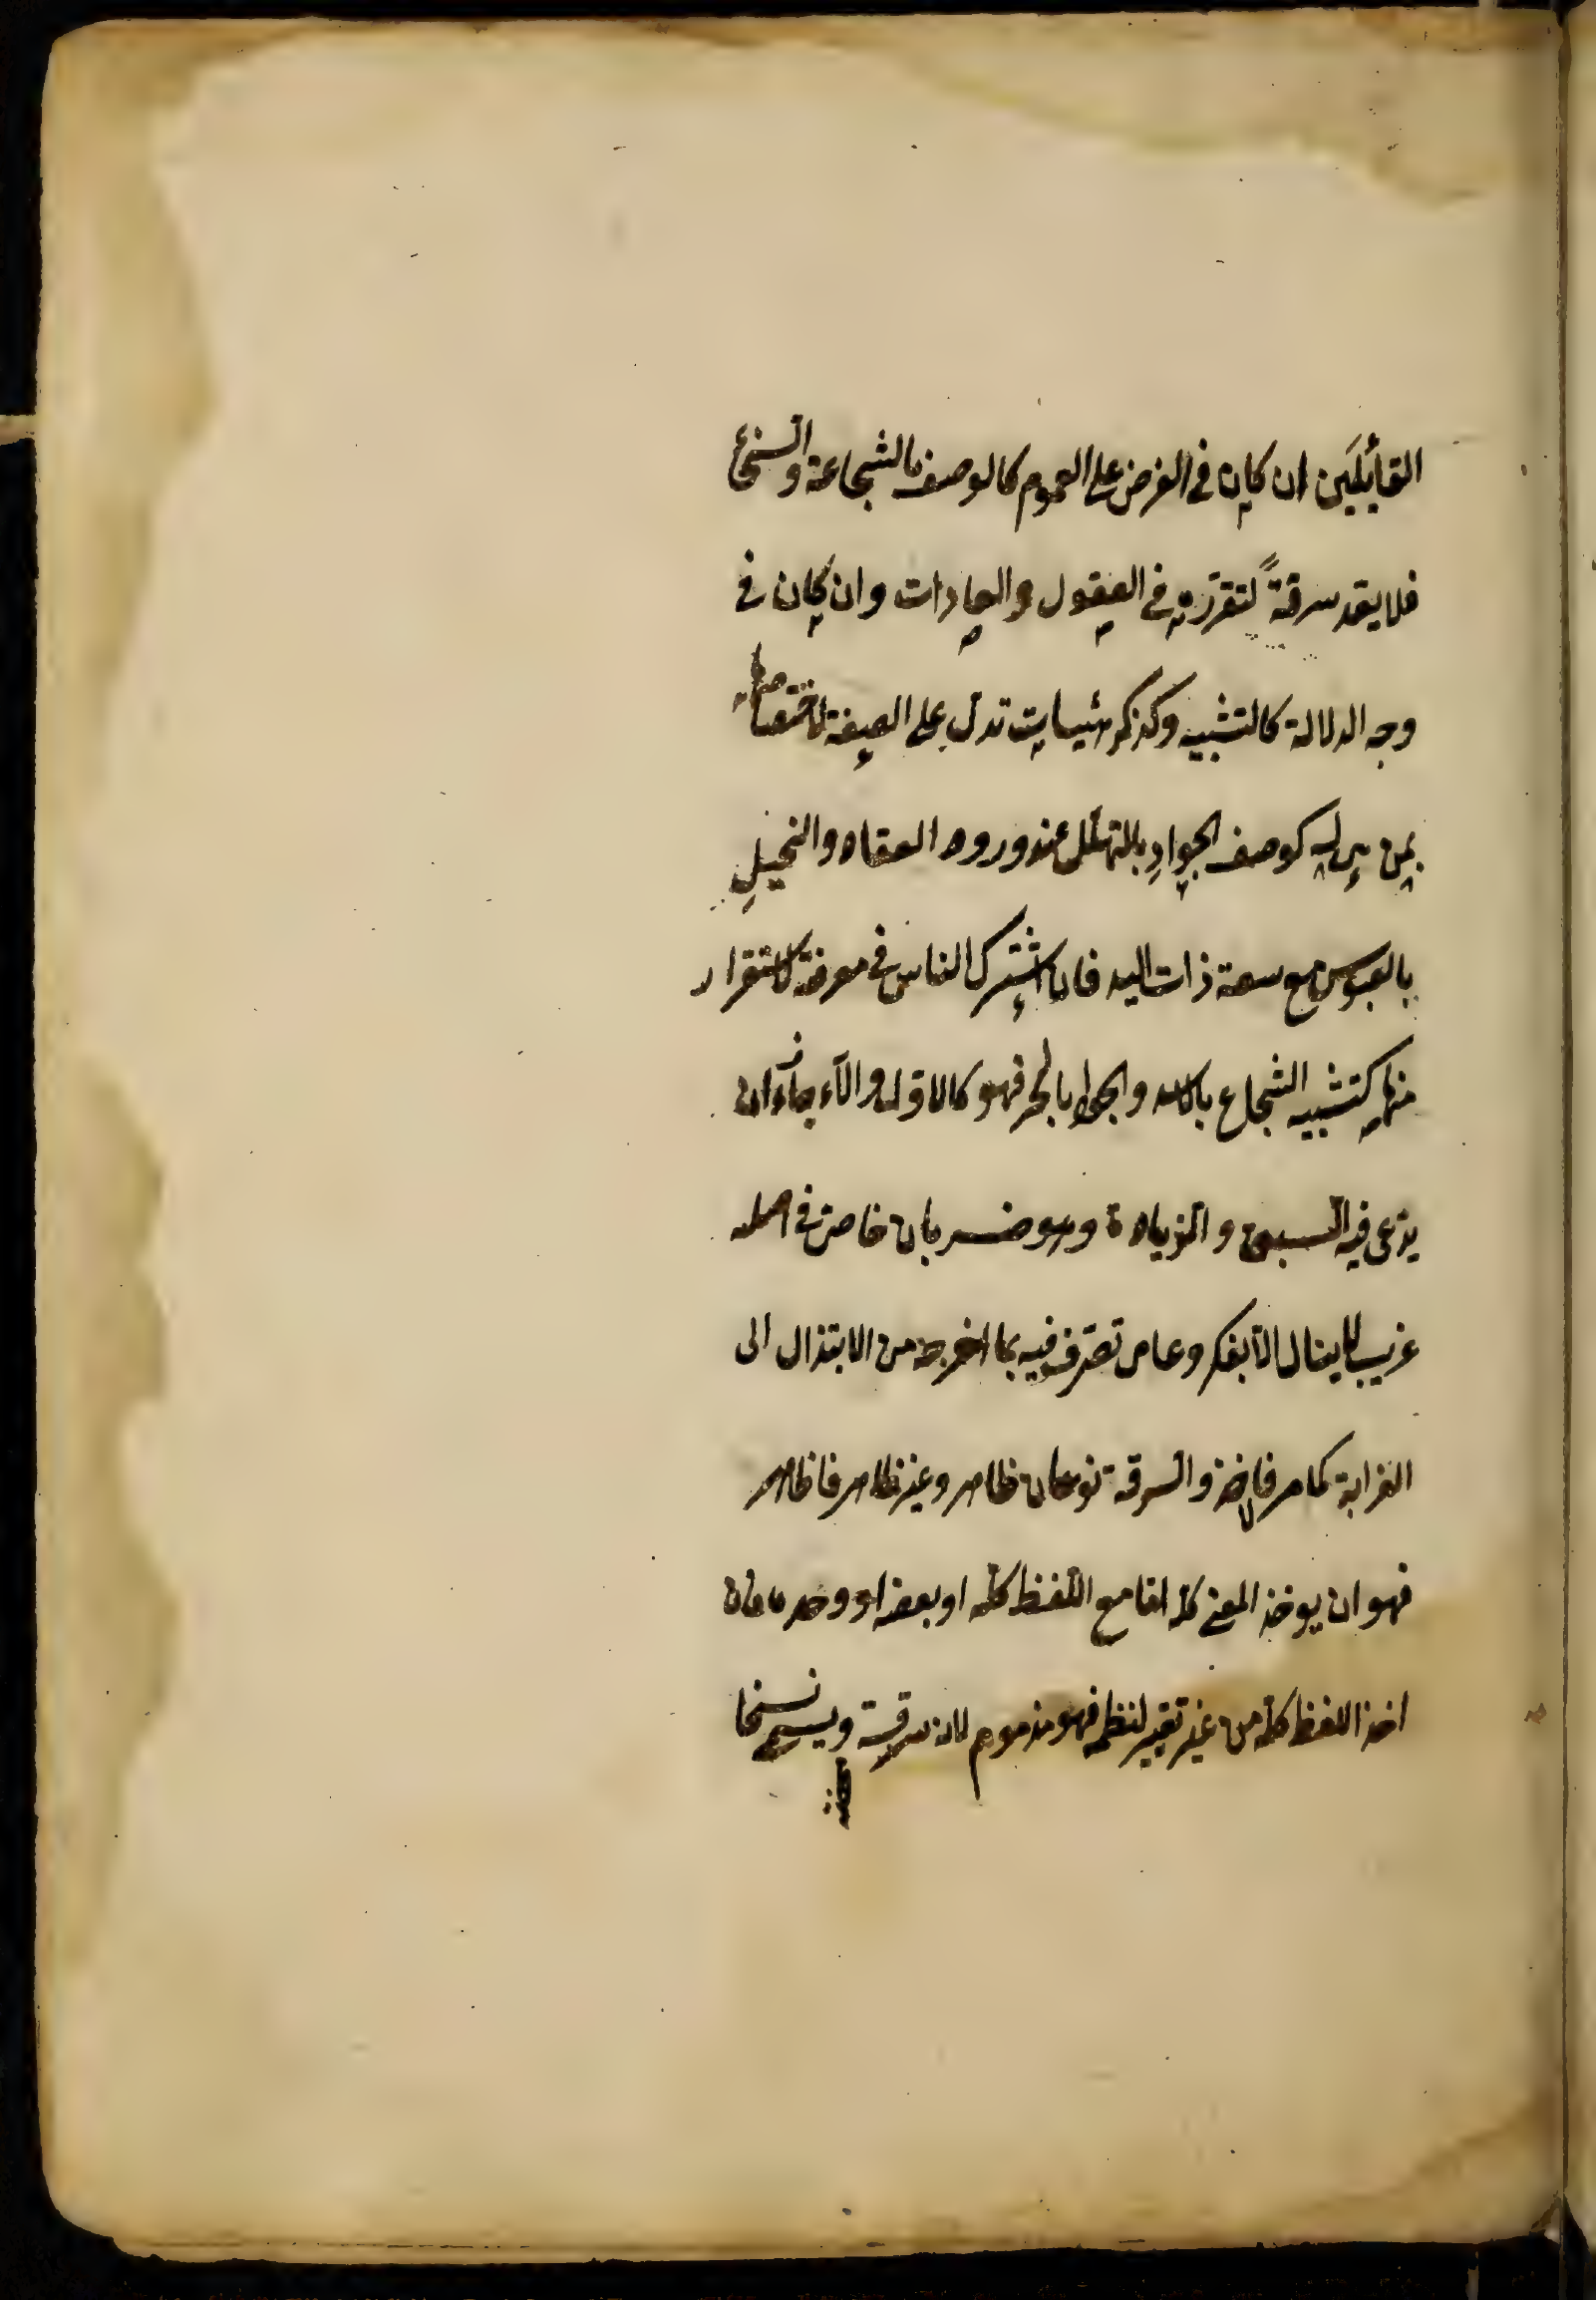 القائلين ان كان في الغرض على العموم كالوصف بالشجاعة والسخاء
فلا يعد سرقةً لتقرره في العقول والعادات وان كان في
وجه الدلالة كالتشبيه وكذكر هيئات تدل على الصفة لاختصاصها
بمن هي له كوصف الجوادِ بالتهلل عند ورود العفاه والبخيلِ
بالعبوس مع سعة ذات اليد فان اشترك الناس في معرفة لاستقرار
منها كتشبيه الشجاع بالاسد والجواد بالبحر فهو كالاول والا جاز ان
يدعى فيه السبق والزيادة وهو ضربان خاص في اصله
غريب لا ينال الا بفكر وعامي تصرف فيه بما اخرجه من الابتذال الى
الغرابة كما مر فالاخذ والسرقة نوعان ظاهر وغير ظاهر فالظاهر
فهو ان يوخذ المعنى كله اما مع اللفظ كله او بعضه او وحده فان
اخذ اللفظ كله من غير تغيير لنظمه فهو مذموم لانه سرقة ويسمى نسخا